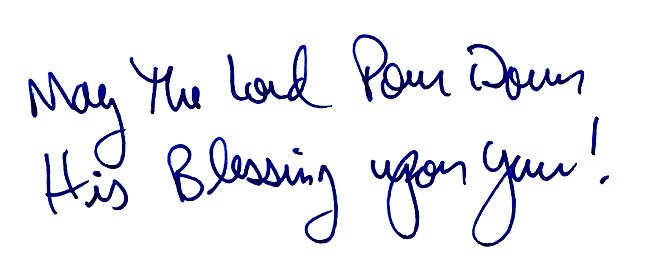 May The Lord Pour Down
His Blessing upon you!